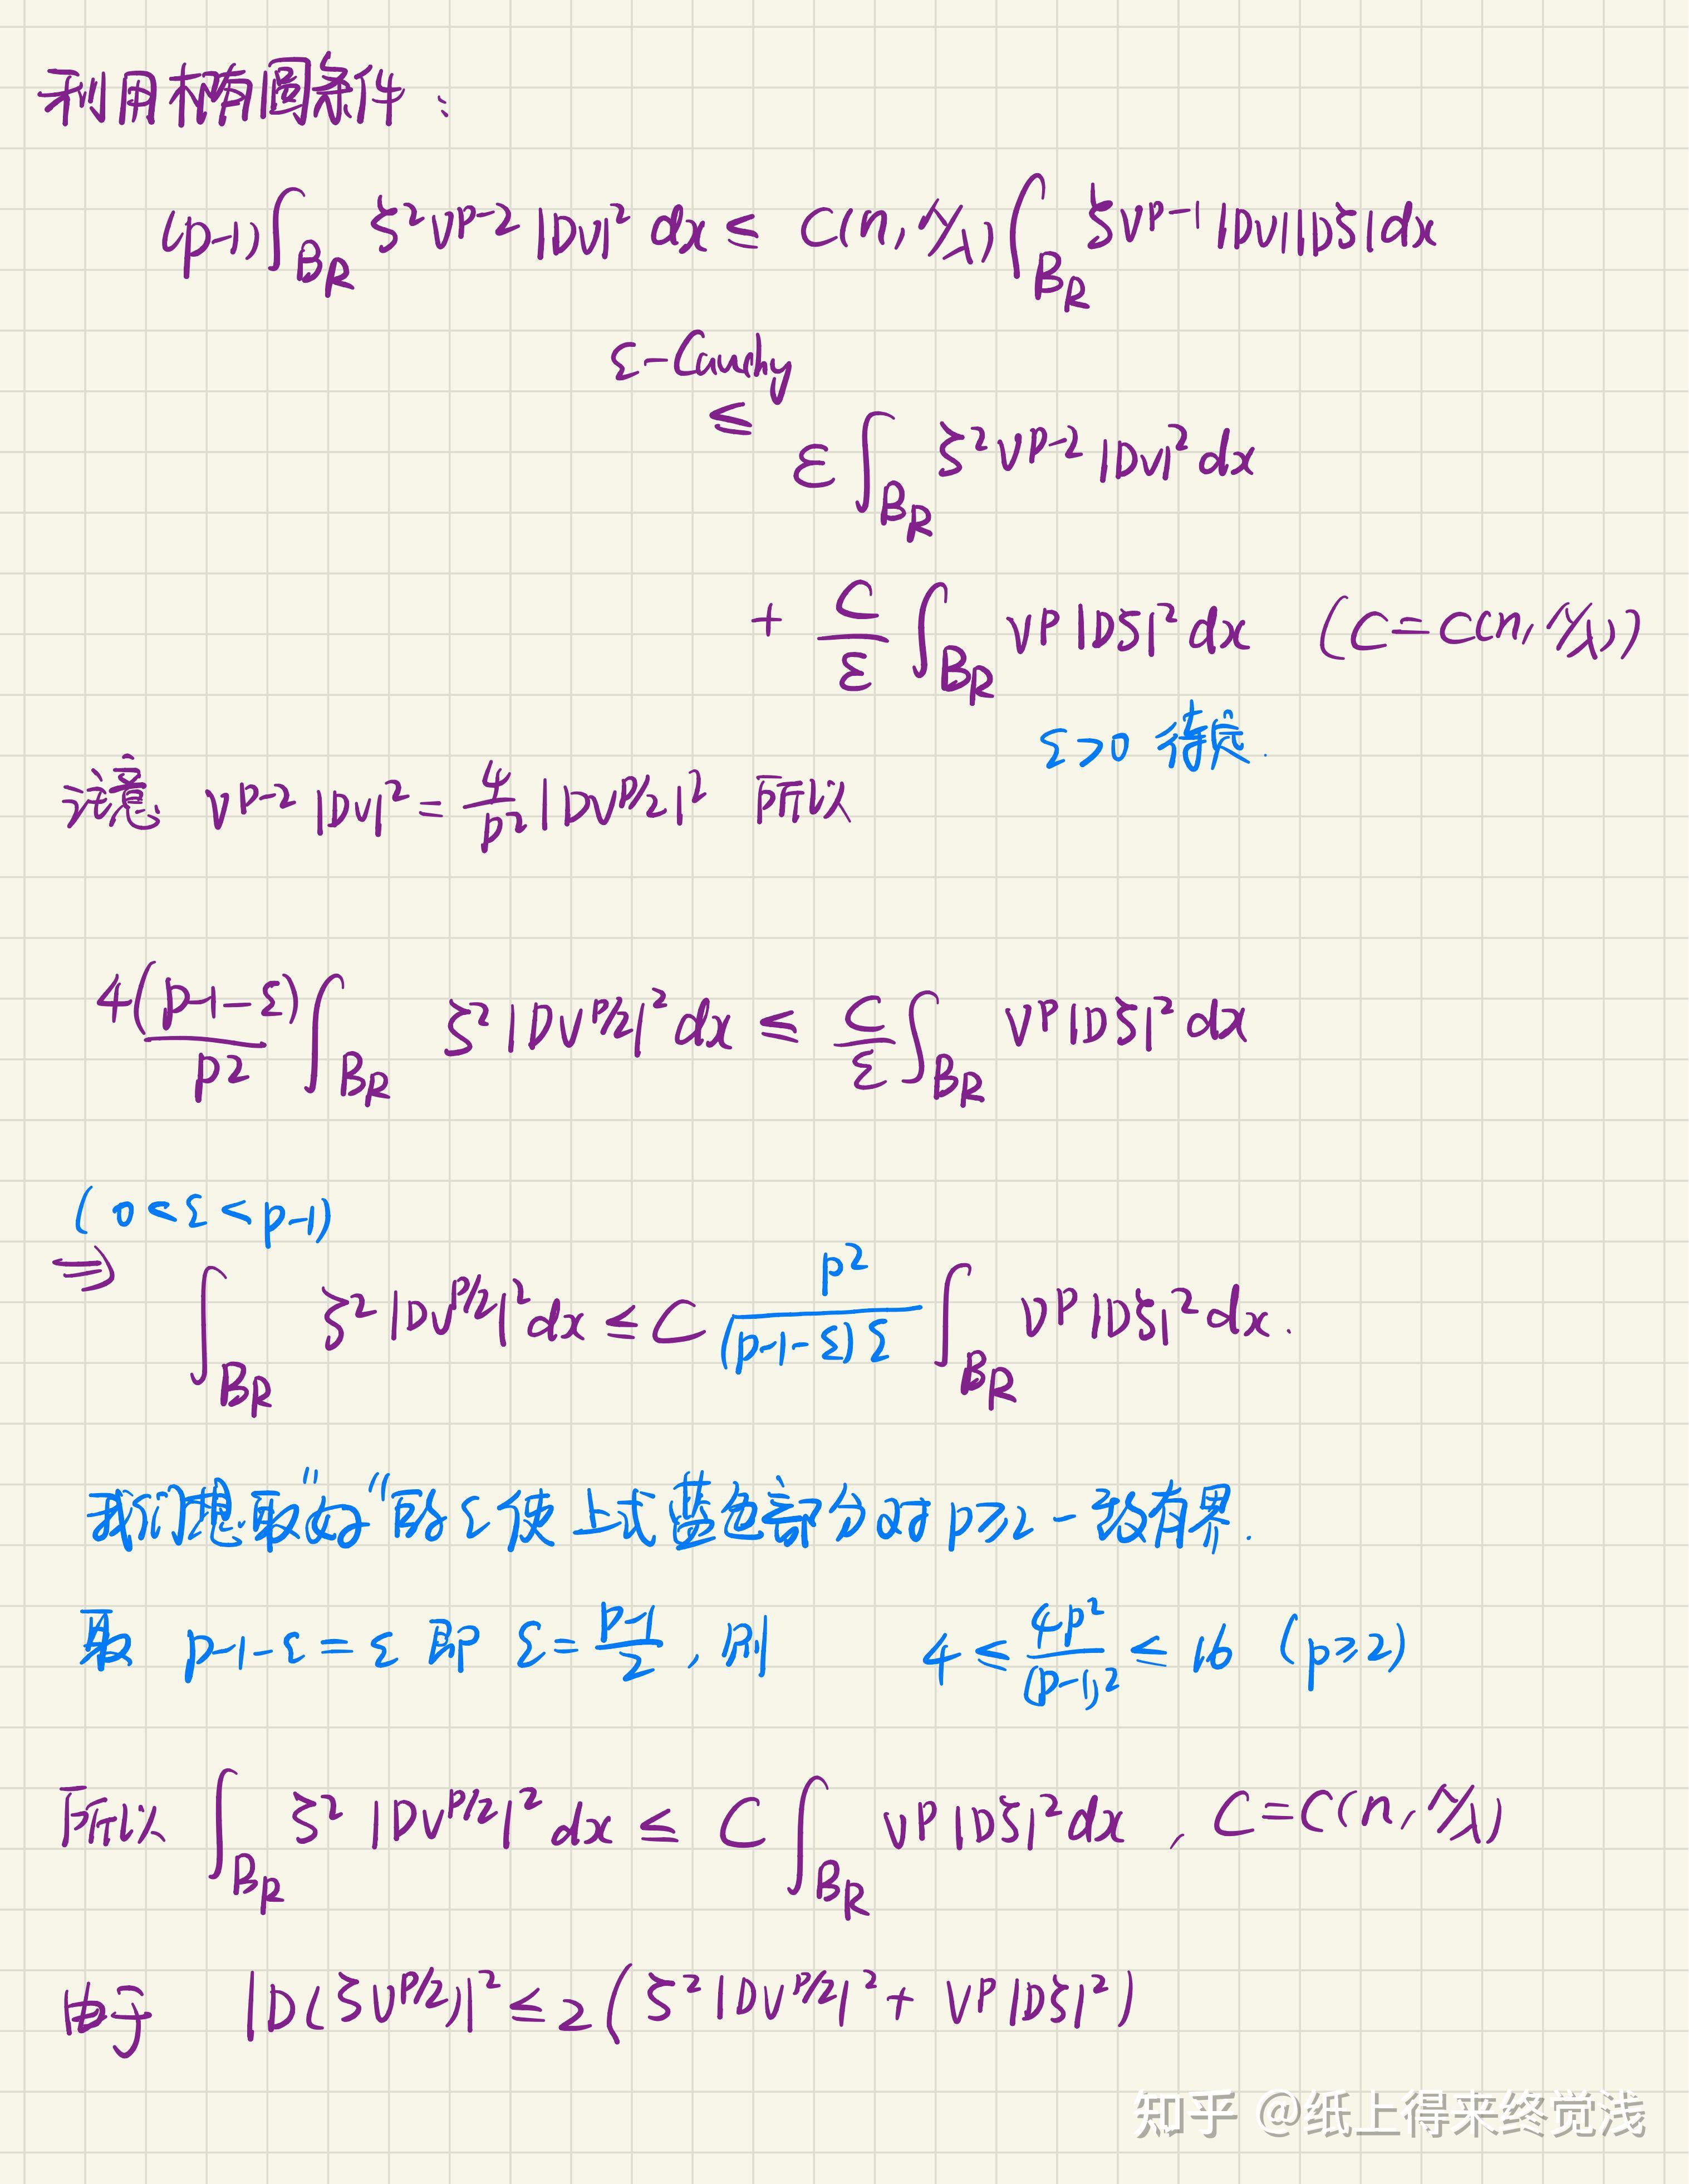 利用椭圆条件：
(p-1)∫_{B_R} ζ² v^{p-2} |Dv|² dx ≤ C(n, Λ/λ) ∫_{B_R} ζ v^{p-1} |Dv||Dζ| dx
ε-Cauchy
≤ ε ∫_{B_R} ζ² v^{p-2} |Dv|² dx
+ C/ε ∫_{B_R} v^p |Dζ|² dx (C = C(n, Λ/λ))
ε>0 待定.
注意 v^{p-2} |Dv|² = 4/p² |Dv^{p/2}|² 所以
4(p-1-ε)/p² ∫_{B_R} ζ² |Dv^{p/2}|² dx ≤ C/ε ∫_{B_R} v^p |Dζ|² dx
(0<ε<p-1)
⇒ ∫_{B_R} ζ² |Dv^{p/2}|² dx ≤ C p²/((p-1-ε)ε) ∫_{B_R} v^p |Dζ|² dx.
我们想取"好"的ε使上式蓝色部分对p≥2一致有界.
取 p-1-ε = ε 即 ε = (p-1)/2 , 则 4 ≤ 4p²/(p-1)² ≤ 16 (p≥2)
所以 ∫_{B_R} ζ² |Dv^{p/2}|² dx ≤ C ∫_{B_R} v^p |Dζ|² dx , C = C(n, Λ/λ)
由于 |D(ζv^{p/2})|² ≤ 2(ζ² |Dv^{p/2}|² + v^p |Dζ|²)
知乎 @纸上得来终觉浅